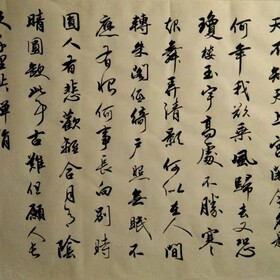 天不知天上宮闕今夕
何年我欲乘風歸去又恐
瓊樓玉宇高處不勝寒
起舞弄清影何似在人間
轉朱閣低綺戶照無眠不
應有恨何事長向別時
圓人有悲歡離合月有陰
晴圓缺此事古難但願人長
久千里共嬋娟